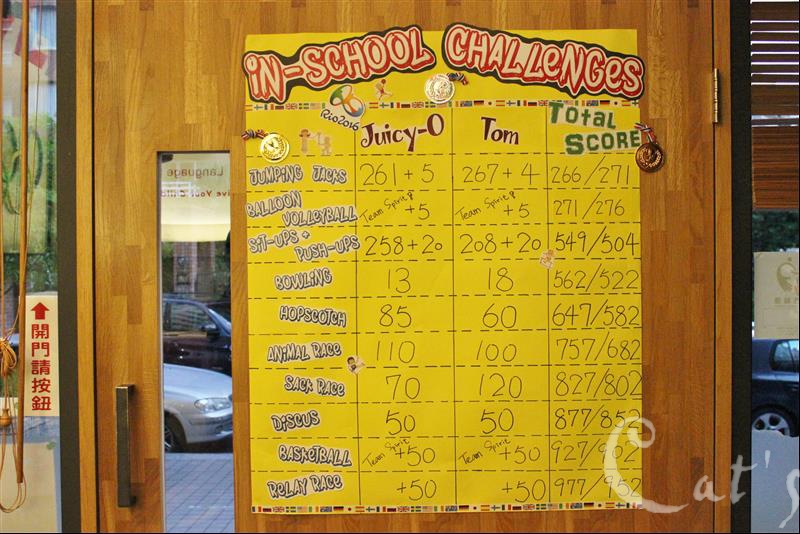 iN-SCHOOL CHALLENGES
RiO2016
Juicy-O Tom TOTAL SCORE
JUMPING JACKS 261 + 5 267 + 4 266/271
BALLOON VOLLEYBALL Team Spirit +5 Team Spirit +5 271/276
SIT-UPS + PUSH-UPS 258+20 208+20 549/504
BOWLING 13 18 562/522
HOPSCOTCH 85 60 647/582
ANIMAL RACE 110 100 757/682
SACK RACE 70 120 827/802
DISCUS 50 50 877/852
BASKETBALL Team Spirit +50 Team Spirit +50 927/902
RELAY RACE +50 +50 977/952
Language
開門請按鈕
Cat's